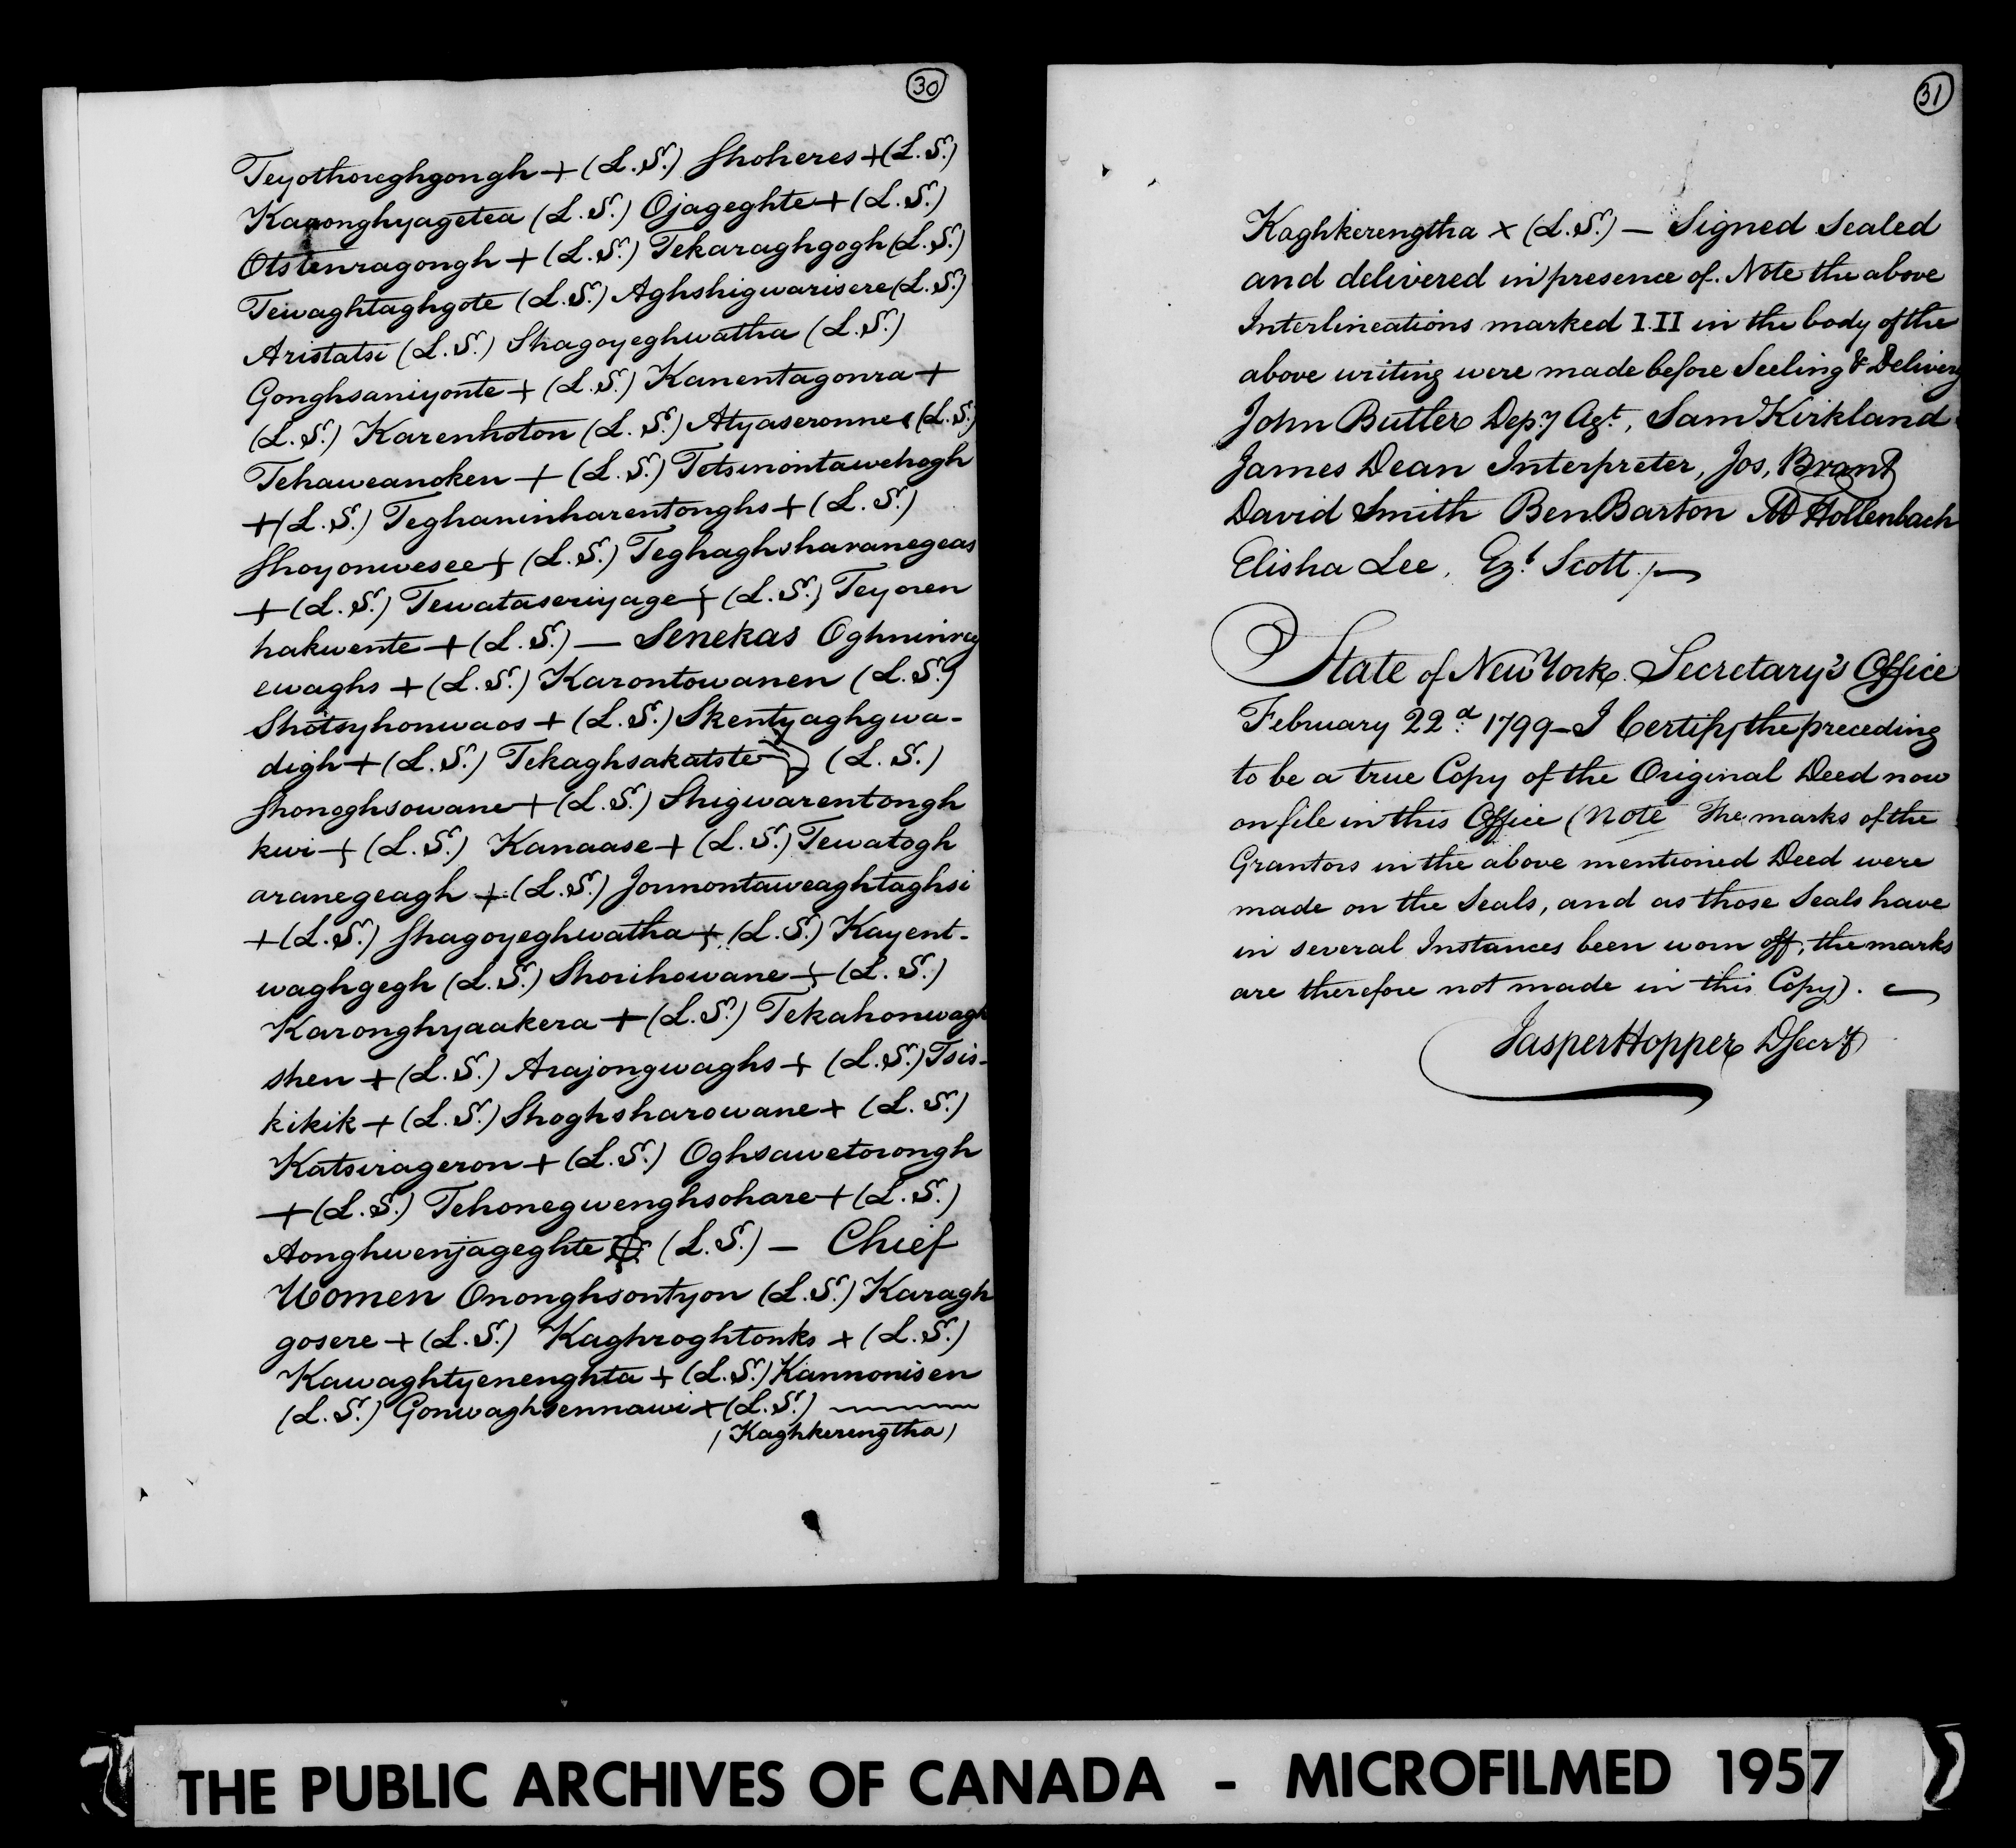 30
Teyothoreghgongh + (L.S.) Shoheres + (L.S.)
Karonghyagetea (L.S.) Ojageghte + (L.S.)
Otstenragongh + (L.S.) Tekaraghgogh (L.S.)
Tewaghtaghgote (L.S.) Aghshigwarisere (L.S.)
Aristatsi (L.S.) Shagoyeghwatha (L.S.)
Gonghsaniyonte + (L.S.) Kanentagonra +
(L.S.) Karenhoton (L.S.) Atyaseronne (L.S.)
Tehaweanoken + (L.S.) Tetsinontawehogh
+ (L.S.) Teghaninharentonghs + (L.S.)
Shoyonwesee + (L.S.) Teghaghsharanegeas
+ (L.S.) Tewataseriyage + (L.S.) Teyoren
hakwente + (L.S.) — Senekas Oghninrag
ewaghs + (L.S.) Karontowanen (L.S.)
Shotsyhonwaos + (L.S.) Skentyaghgwa-
digh + (L.S.) Tekaghsakatste (L.S.)
Shonoghsowane + (L.S.) Shigwarentongh
kwi + (L.S.) Kanaase + (L.S.) Tewatogh
aranegeagh + (L.S.) Jonnontaweaghtaghsi
+ (L.S.) Shagoyeghwatha + (L.S.) Kayent-
waghgegh (L.S.) Shorihowane + (L.S.)
Karonghyaakera + (L.S.) Tekahonwagh
shen + (L.S.) Arajongwaghs + (L.S.) Tsis-
kikik + (L.S.) Shoghsharowane + (L.S.)
Katsirageron + (L.S.) Oghsawetorongh
+ (L.S.) Tehonegwenghsohare + (L.S.)
Aonghwenjageghte (L.S.) — Chief
Women Ononghsontyon (L.S.) Karagh
gosere + (L.S.) Kaghroghtonks + (L.S.)
Kawaghtyenenghta + (L.S.) Kannonisen
(L.S.) Gonwaghsennawi + (L.S.)
(Kaghkerengtha)
31
Kaghkerengtha x (L.S.) — Signed Sealed
and delivered in presence of. Note the above
Interlineations marked I.II in the body of the
above writing were made before Seeling & Delivery
John Butler Dep.y Agt., Sam Kirkland
James Dean Interpreter, Jos, Brant
David Smith Ben Barton M Hollenbach
Elisha Lee, Ez.t Scott.
State of New York. Secretary's Office
February 22d. 1799 – I Certify the preceding
to be a true Copy of the Original Deed now
on file in this Office (Note The marks of the
Grantors in the above mentioned Deed were
made on the Seals, and as those Seals have
in several Instances been worn off, the marks
are therefore not made in this Copy).
Jasper Hopper DSecry
THE PUBLIC ARCHIVES OF CANADA - MICROFILMED 1957